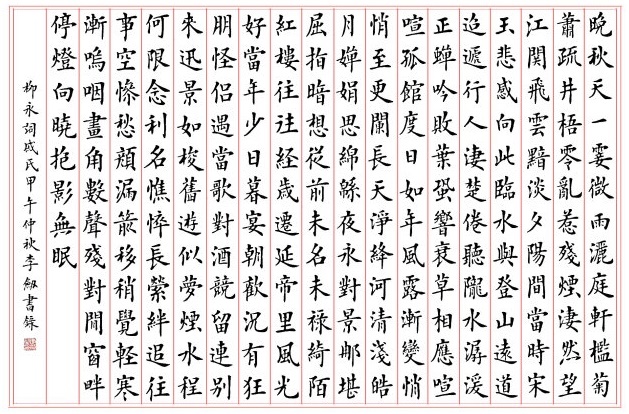 晚秋天一霎微雨灑庭軒檻菊
蕭疏井梧零亂惹殘煙淒然望
江關飛雲黯淡夕陽間當時宋
玉悲感向此臨水與登山遠道
迢遞行人淒楚倦聽隴水潺湲
正蟬吟敗葉蛩響衰草相應喧
喧孤館度日如年風露漸變悄
悄至更闌長天淨絳河清淺皓
月嬋娟思綿緜夜永對景那堪
屈指暗想從前未名未祿綺陌
紅樓往往經歲遷延帝里風光
好當年少日暮宴朝歡況有狂
朋怪侶遇當歌對酒競留連別
來迅景如梭舊遊似夢煙水程
何限念利名憔悴長縈絆追往
事空慘愁顏漏箭移稍覺輕寒
漸嗚咽畫角數聲殘對閒窗畔
停燈向曉抱影無眠
柳永詞戚氏甲午仲秋李劔書錄